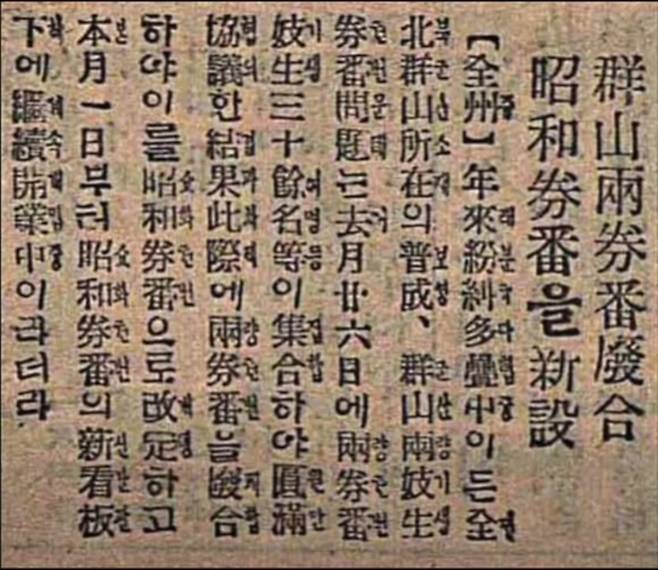 群山兩券番廢合
昭和券番을新設
【全州】年來紛糾多疊中이든全
北群山所在의普成、群山兩妓生
券番問題는去月廿六日에兩券番
妓生三十餘名等이集合하야圓滿
協議한結果此際에兩券番을廢合
하야이를昭和券番으로改定하고
本月一日부터昭和券番의新看板
下에繼續開業中이라더라